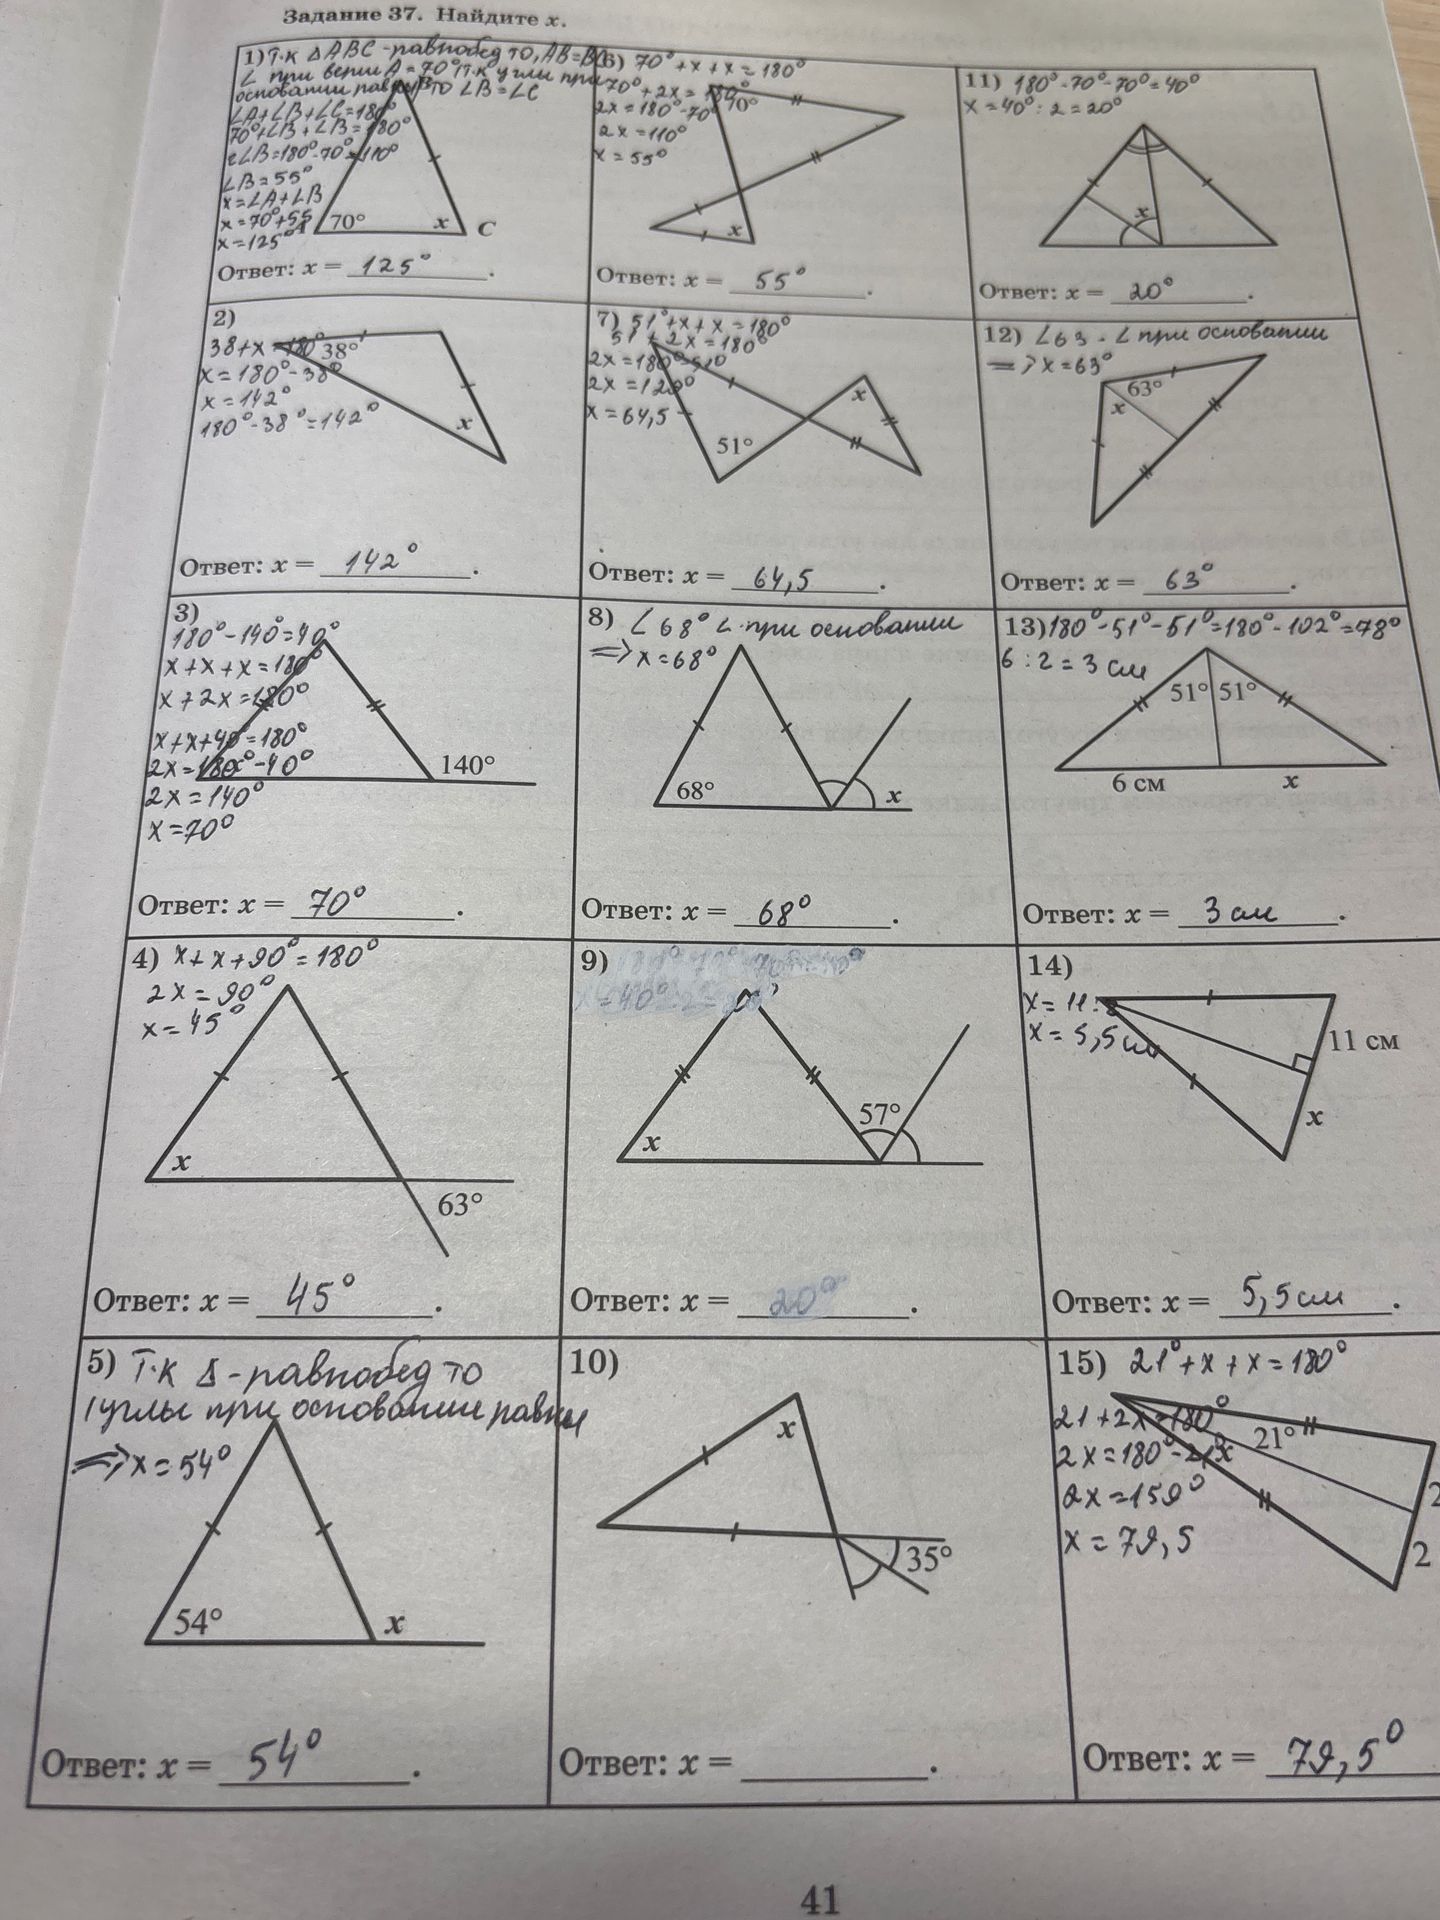 Задание 37. Найдите x.
1) Т.к △ABC - равнобед то, AB=BC
∠ при верши A = 70° Т.к углы при
основании равны то ∠B = ∠C
∠A+∠B+∠C=180°
70°+∠B+∠B=180°
2∠B=180°-70°=110°
∠B=55°
x=∠A+∠B
x=70°+55
x=125°
B
A
70°
x
C
Ответ: x = 125°.
2)
38+x=180°
38°
x=180°-38°
x=142°
180°-38°=142°
x
Ответ: x = 142°.
3)
180°-140°=40°
x+x+x=180°
x+2x=180°
x+x+40°=180°
2x=180°-40°
2x=140°
x=70°
140°
Ответ: x = 70°.
4) x+x+90°=180°
2x=90°
x=45°
x
63°
Ответ: x = 45°.
5) Т.к △-равнобед то
углы при основании равны
⇒x=54°
54°
x
Ответ: x = 54°.
6) 70°+x+x=180°
70°+2x=180°
70°
2x=180°-70°
2x=110°
x=55°
x
Ответ: x = 55°.
7) 51°+x+x=180°
51+2x=180°
2x=180°-51°
2x=129°
x=64,5
x
51°
Ответ: x = 64,5.
8) ∠68° ∠ при основании
⇒x=68°
68°
x
Ответ: x = 68°.
9)
57°
x
Ответ: x = 20°.
10)
x
35°
Ответ: x = .
11) 180°-70°-70°=40°
x=40°:2=20°
x
Ответ: x = 20°.
12) ∠63 - ∠ при основании
⇒x=63°
63°
x
Ответ: x = 63°.
13) 180°-51°-51°=180°-102°=78°
6:2=3 см
51° 51°
6 см
x
Ответ: x = 3 см.
14)
x=11:2
x=5,5см
11 см
x
Ответ: x = 5,5см.
15) 21°+x+x=180°
21+2x=180°
21°
2x=180°-21°
x
2x=159°
x=79,5
2
2
Ответ: x = 79,5°
41